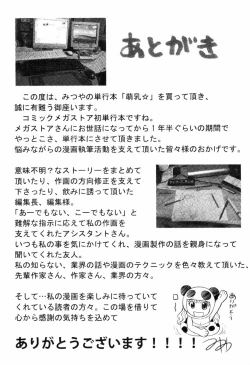 あとがき
この度は、みつやの単行本「萌乳☆」を買って頂き、
誠に有難う御座います。
コミックメガストア初単行本ですね。
メガストアさんにお世話になってから1年半ぐらいの期間で
やっとこさ、単行本にさせて頂きました。
悩みながらの漫画執筆活動を支えて頂いた皆々様のおかげです。
意味不明?なストーリーをまとめて
頂いたり、作画の方向修正を支えて
下さったり、飲みに誘って頂いた
編集長、編集様。
「あーでもない、こーでもない」と
難解な指示に応えて私の作画を
支えてくれたアシスタントさん。
いつも私の事を気にかけてくれ、漫画製作の話を親身になって
聞いてくれた友人。
私の知らない、業界の話や漫画のテクニックを色々教えて頂いた、
先輩作家さん、作家さん、業界の方々。
そして…私の漫画を楽しみに待っていて
くれている読者の方々。この場を借りて
心から感謝の気持ちを込めて
ありがとうございます!!!!